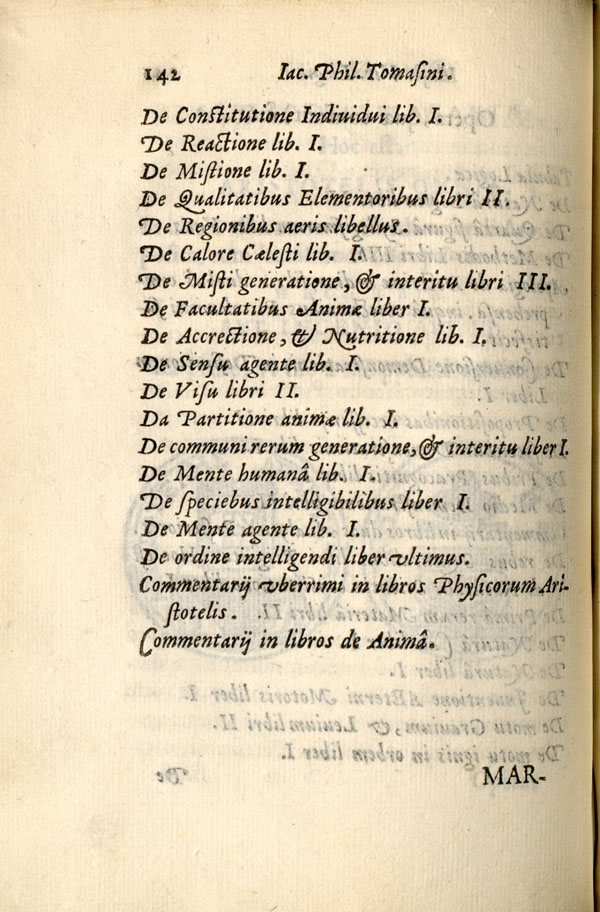 142 Iac. Phil. Tomaſini.
De Conſtitutione Indiuidui lib. I.
De Reactione lib. I.
De Miſtione lib. I.
De Qualitatibus Elementoribus libri II.
De Regionibus aeris libellus.
De Calore Cæleſti lib. I.
De Miſti generatione, & interitu libri III.
De Facultatibus Animæ liber I.
De Accrectione, & Nutritione lib. I.
De Senſu agente lib. I.
De Viſu libri II.
Da Partitione animæ lib. I.
De communi rerum generatione, & interitu liber I.
De Mente humanâ lib. I.
De ſpeciebus intelligibilibus liber I.
De Mente agente lib. I.
De ordine intelligendi liber vltimus.
Commentarij vberrimi in libros Phyſicorum Ari-
ſtotelis.
Commentarij in libros de Animâ.
MAR-